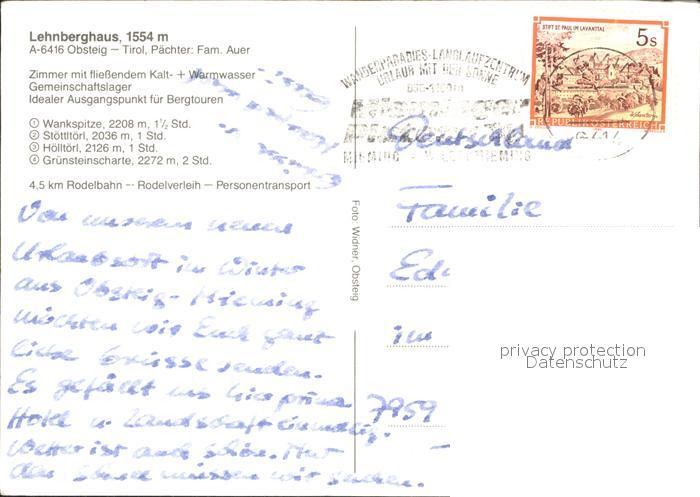 Lehnberghaus, 1554 m
A-6416 Obsteig — Tirol, Pächter: Fam. Auer
Zimmer mit fließendem Kalt- + Warmwasser
Gemeinschaftslager
Idealer Ausgangspunkt für Bergtouren
① Wankspitze, 2208 m, 1½ Std.
② Stöttltörl, 2036 m, 1 Std.
③ Hölltörl, 2126 m, 1 Std.
④ Grünsteinscharte, 2272 m, 2 Std.
4,5 km Rodelbahn -- Rodelverleih — Personentransport
Von unserem neuen
Urlaubsort im Winter
aus Obsteig-Mieming
möchten wir Euch ganz
liebe Grüsse senden.
Es gefällt uns hier prima
Hotel u. Landschaft einmalig.
Wetter ist auch schön. Nur
den Schnee müssen wir suchen.
Foto: Widner, Obsteig
WANDERPARADIES-LANGLAUFZENTRUM
URLAUB MIT DER SONNE
MIEMING
STIFT ST. PAUL IM LAVANTTAL
5s
REPUBLIK ÖSTERREICH
Deutschland
Familie
im
7959
privacy protection
Datenschutz